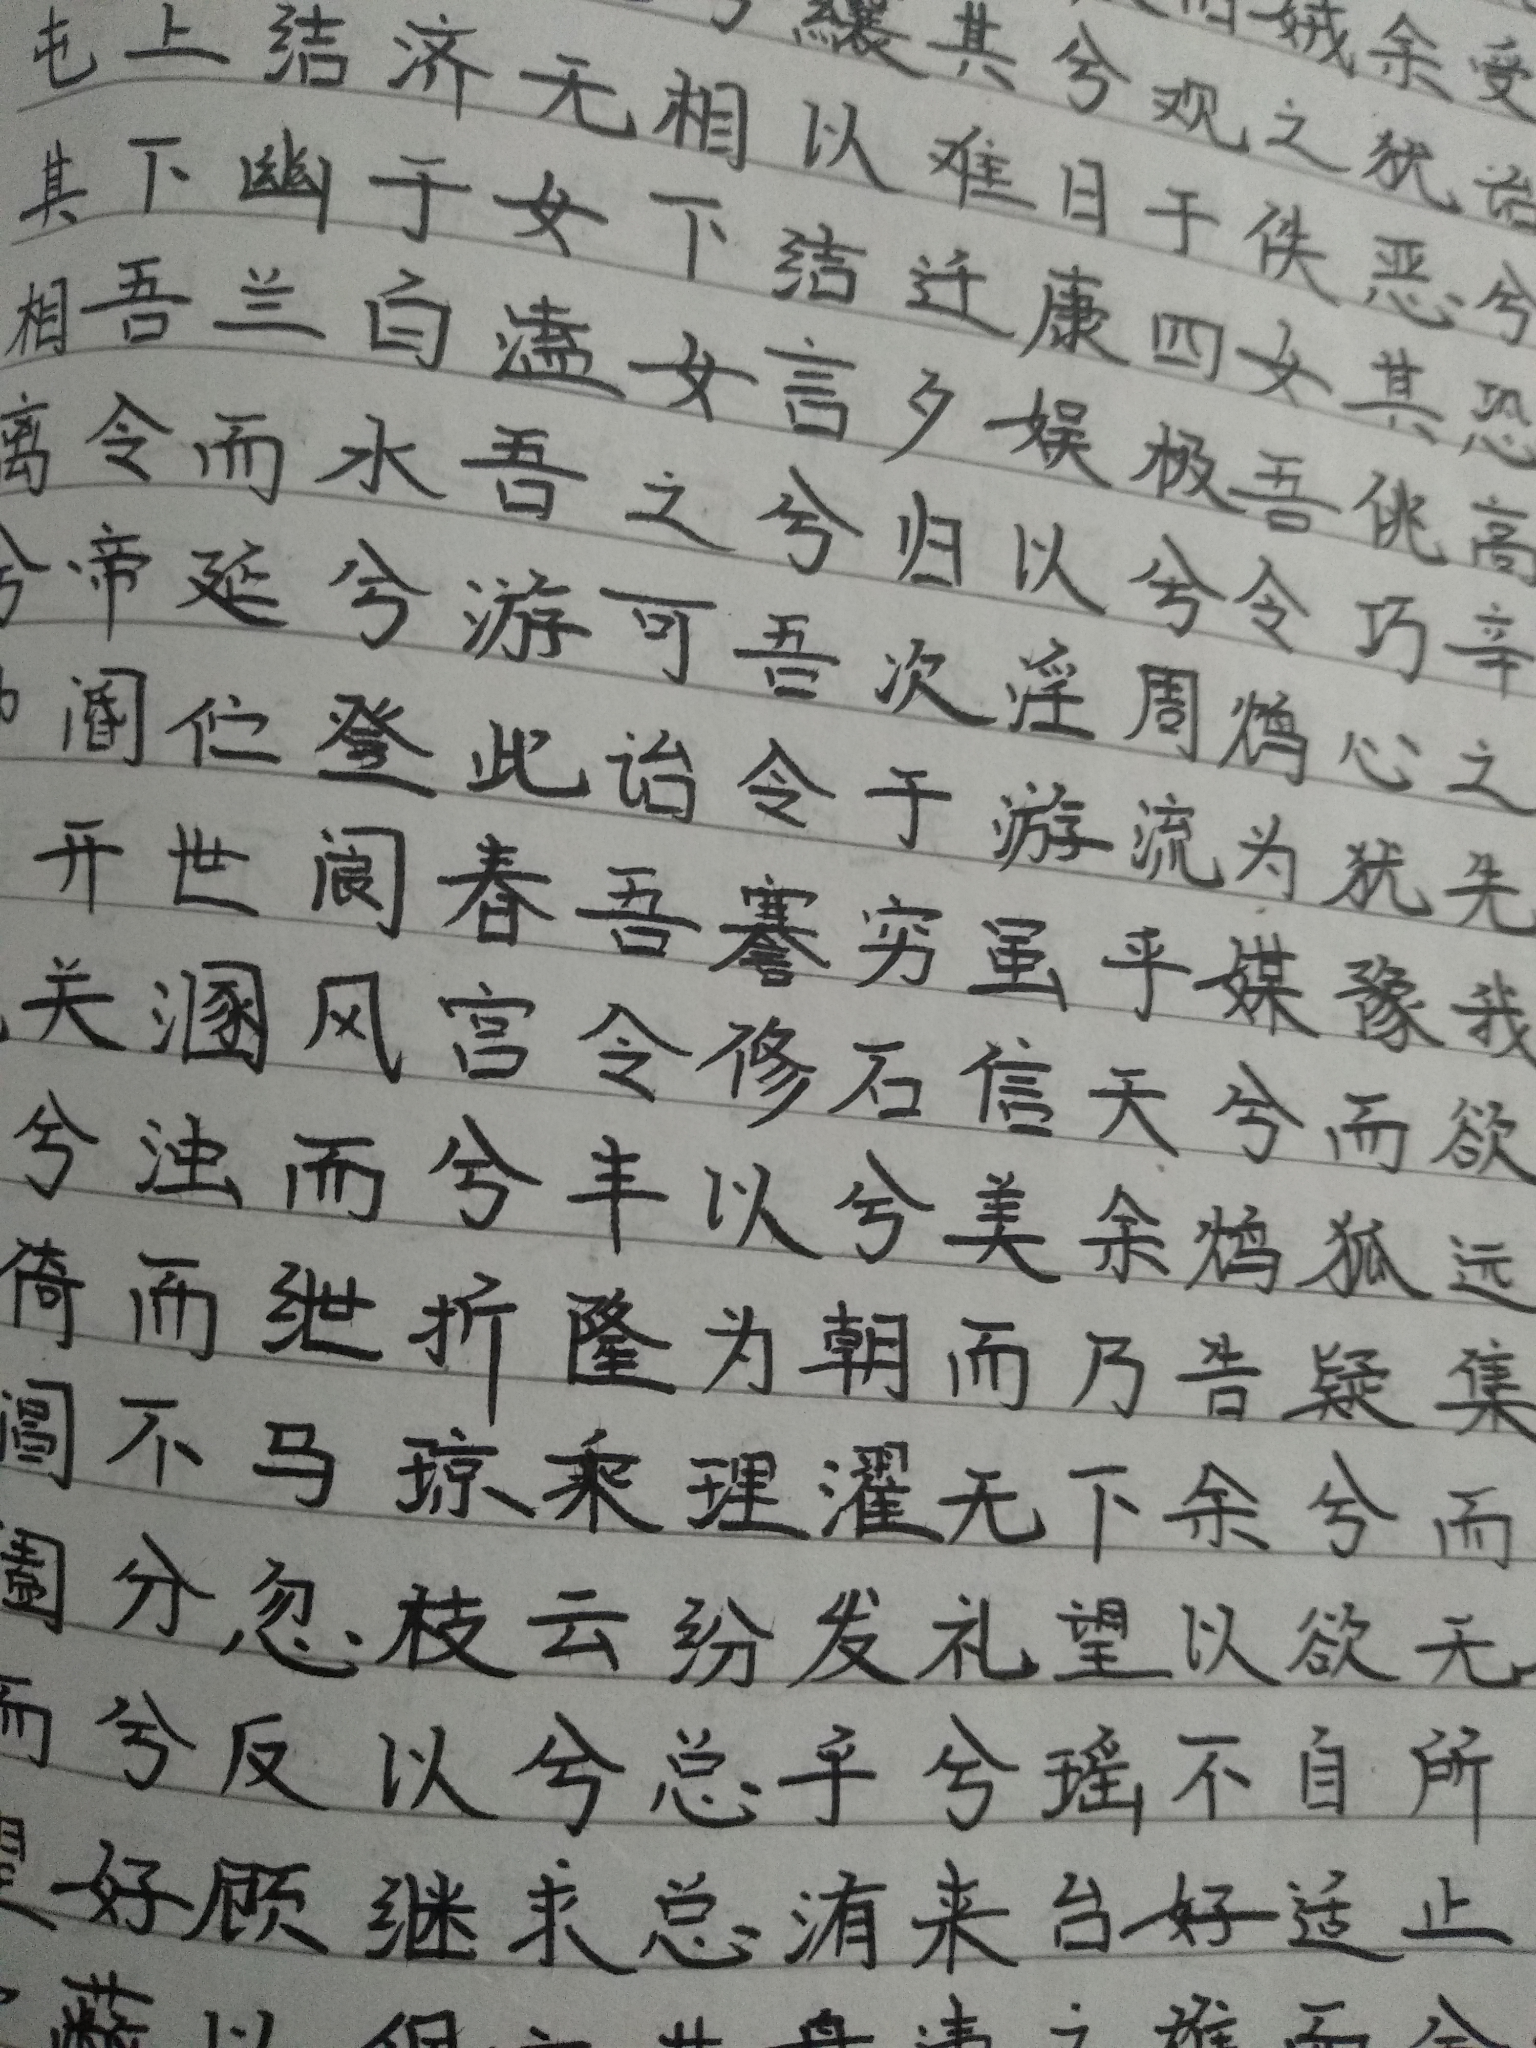 屯其相离兮
上下吾令帝阍开关兮倚阊阖而望
结幽兰而延伫世溷浊而不分兮好蔽
济于白水兮登阆风而绁马忽反顾以
无女溘吾游此春宫兮折琼枝以继佩
相下女之可诒吾令丰隆乘云兮求
纕以结言兮吾令謇修以为理纷总总其
其难迁夕归次于穷石兮朝濯发乎洧盘
兮日康娱以淫游虽信美而无礼兮来违
观于四极兮周流乎天余乃下望瑶台之
娀之佚女吾令鸩为媒兮鸩告余以不好雄
余犹恶其佻巧心犹豫而狐疑兮欲自适而
受诒兮恐高辛之先我欲远集而无所止兮